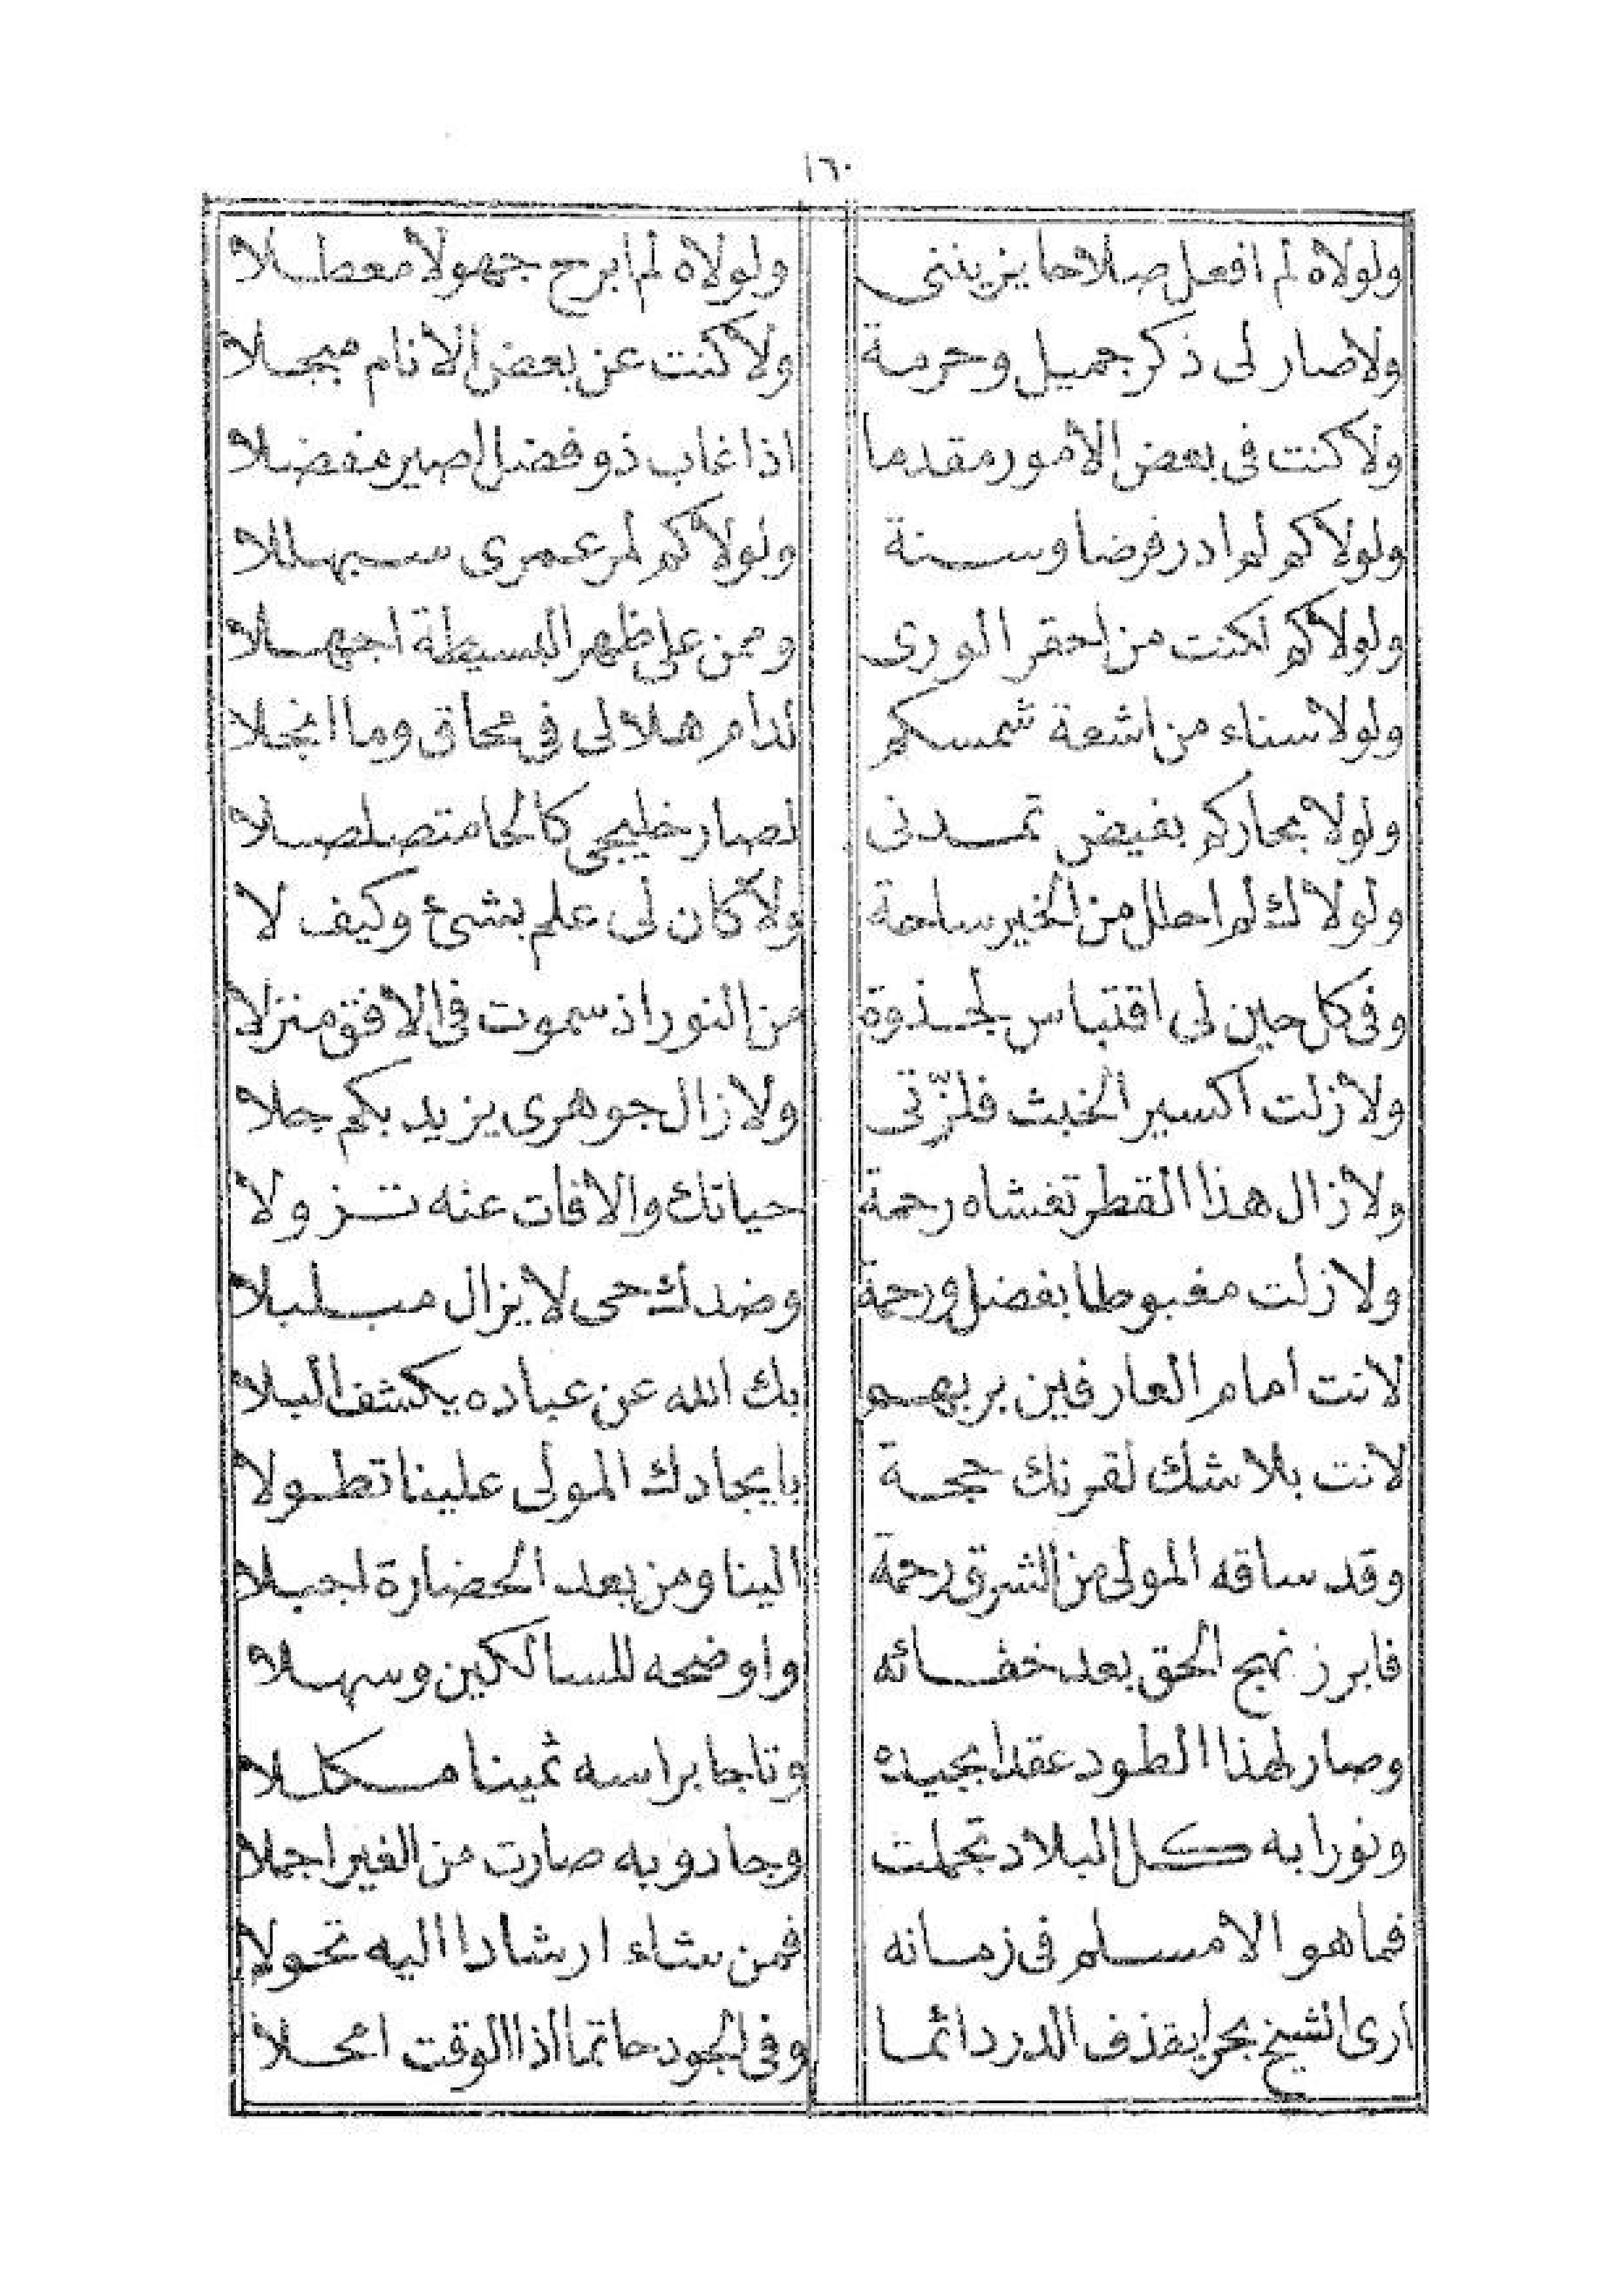 ١٦٠
ولولاه لم افعل صلاحا يزيننى ولولاه لم ابرح جهولا معطلا
ولا صار لى ذكر جميل وحرمة ولا كنت عن بعض الانام مبجلا
ولا كنت فى بعض الأمور مقدما اذا غاب ذو فضل اصير مفضلا
ولولاكم لم ادر فرضا وسنة ولولاكم لمر عمرى سبهللا
ولولاكم لكنت من احقر الورى وممن على ظهر البسيطة اجهلا
ولولا سناء من اشعة شمسكم لدام هلالى فى محاق وما انجلا
ولولا بحاركم بفيض تمدنى لصار خليجى كالحا متصلصلا
ولولاك لم احلل من الخير ساحة ولا كان لى علم بشئ وكيف لا
وفى كل حين لى اقتباس لجذوة من النور اذ سموت فى الافق منزلا
ولا زلت اكسير الخبث فلزّتى ولا زال جوهرى يزيد بكم جلا
ولا زال هذا القطر تغشاه رحمة حياتك والافات عنه تزولا
ولا زلت مغبوطا بفضل ورحمة وضدك حى لا يزال مبلبلا
لانت امام العارفين بربهم بك الله عن عباده يكشف البلا
لانت بلا شك لقرنك حجة بايجادك المولى علينا تطولا
وقد ساقه المولى من الشرق رحمة الينا ومن بعد الحضارة اجبلا
فابرز نهج الحق بعد خفائه واوضحه للسالكين وسهلا
وصار لهذا الطود عقدا بجيده وتاجا براسه ثمينا مكللا
ونورا به كل البلاد تجملت وجادو به صارت من الغير اجملا
فما هو الا مسلم فى زمانه فمن شاء ارشادا اليه تحولا
ارى الشيخ بحرا يقذف الدر دائما وفى الجود حاتما اذا الوقت امحلا